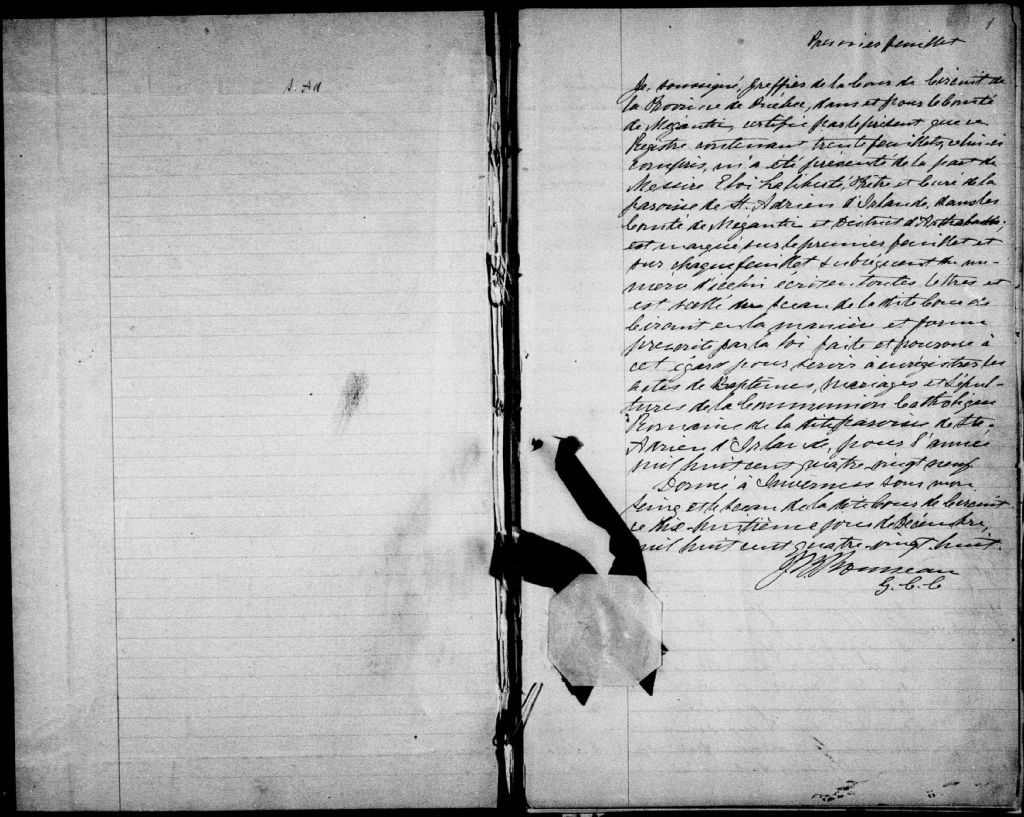 S. Ad
1
Premier feuillet
Je, soussigné, Greffier de la Cour de Circuit de
la Province de Québec, dans et pour le Comté
de Mégantic, certifie par le présent que ce
Registre contenant trente feuillets, celui-ci
compris, m'a été présenté de la part de
Messire Eloi, Prêtre et Curé de la
paroisse de St. Adrien d'Irlande, dans les
Comté de Mégantic et District d'Arthabaska;
est marqué sur le premier feuillet et
sur chaque feuillet subséquent du nu-
mero d'icelui écrit en toutes lettres et
est scellé du Sceau de la dite Cour de
Circuit en la manière et forme
prescrite par la loi faite et pourvue à
cet égard pour servir à enrégistrer les
actes de Baptêmes, mariages et Sépul-
tures de la Communion Catholique
Romaine de la dite paroisse de St.
Adrien d'Irlande, pour l'année
mil huit cent quatre-vingt neuf
Donné à Inverness sous mon
Seing et le Sceau de la dite Cour de Circuit
ce dix-huitième jour de Décembre,
mil huit cent quatre-vingt huit.
Rousseau
G. C. C